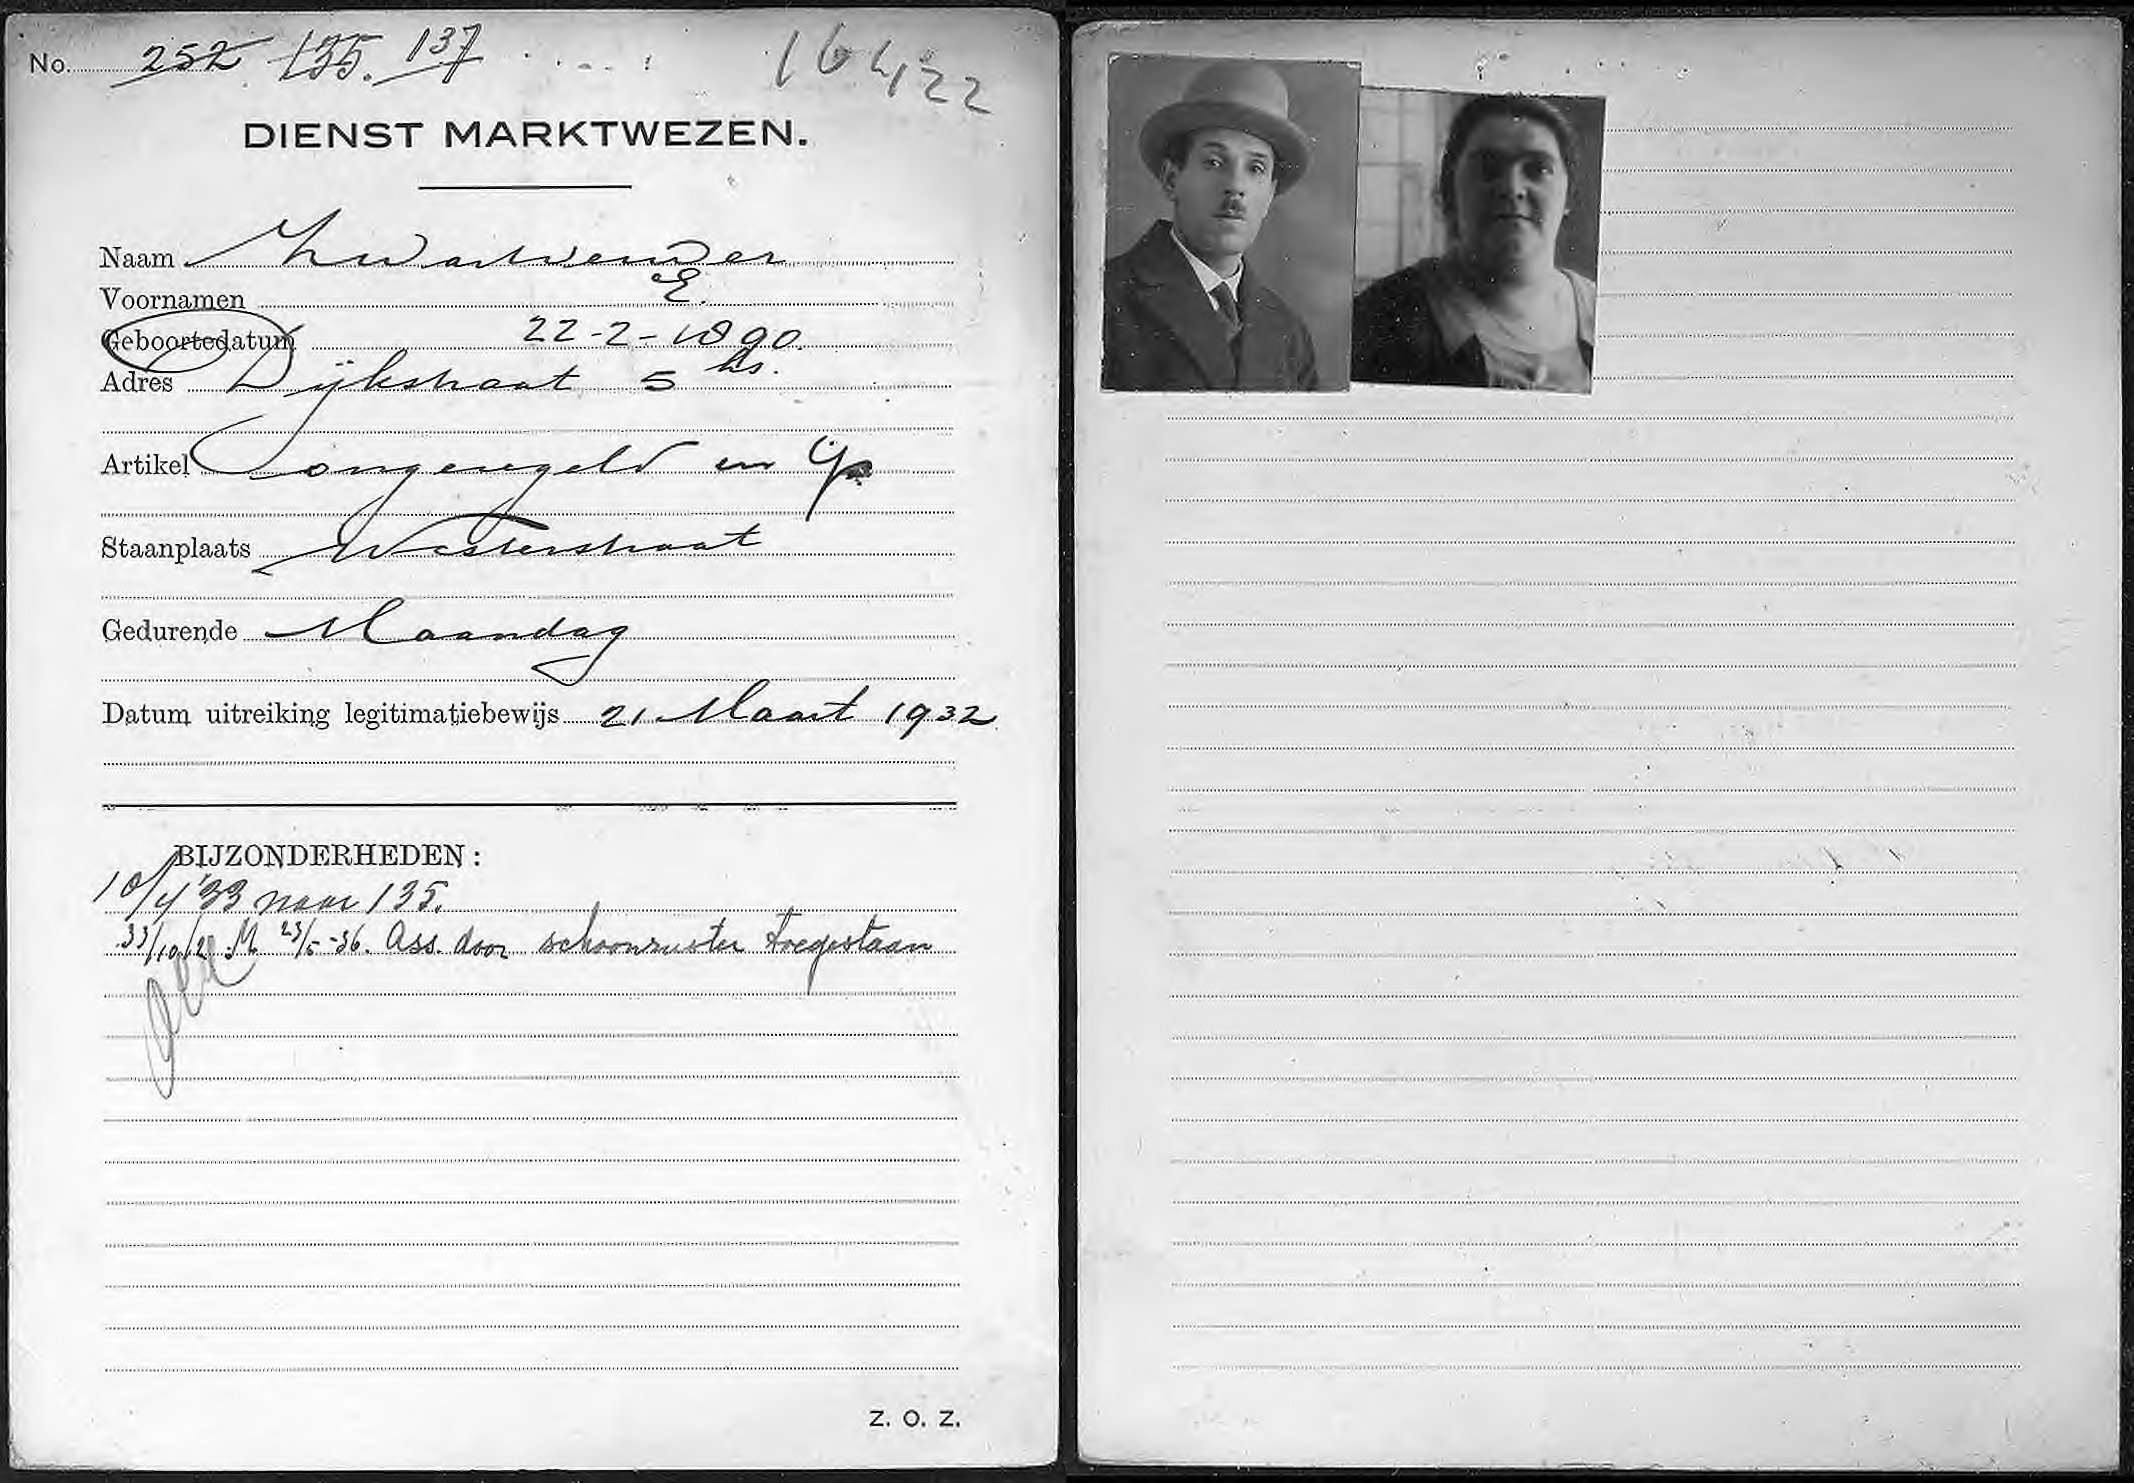 No. 252 135. 137 16422
DIENST MARKTWEZEN.
Naam Zwartverwer
Voornamen E.
Geboortedatum 22-2-1890.
Adres Dijkstraat 5 hs.
Artikel ongeregeld en ijs
Staanplaats Westerstraat
Gedurende Maandag
Datum uitreiking legitimatiebewijs 21 Maart 1932
BIJZONDERHEDEN:
10/4 '33 naar 135.
33/10/2 M 23/5-36. Ass. door schoonzuster toegestaan
Z. O. Z.